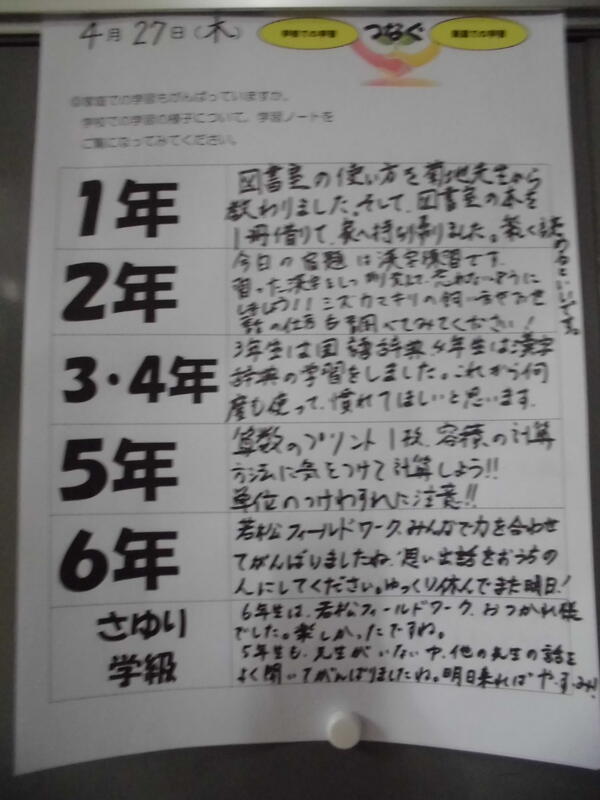 4月27日(木)
学校での学習
つなぐ
家庭での学習
◎家庭での学習もがんばっていますか。
学校での学習の様子について、学習ノートを
ご覧になってみてください。
1年
図書室の使い方を菊地先生から
教わりました。そして、図書室の本を
1冊借りて、家へ持ち帰りました。楽しく読
めるといいです。
2年
今日の宿題は漢字練習です。
習った漢字をしっかり覚えて、忘れないように
しましょう!!ミズカマキリの飼い方やお世
話の仕方も調べてみてください!
3・4年
3年生は国語辞典、4年生は漢字
辞典の学習をしました。これから何
度も使って、慣れてほしいと思います。
5年
算数のプリント1枚、容積の計算
方法に気をつけて計算しよう!!
単位のつけわすれに注意!!
6年
若松フィールドワーク、みんなで力を合わせ
てがんばりましたね。思い出話をおうちの
人にしてください。ゆっくり休んでまた明日!
さゆり
学級
6年生は、若松フィールドワーク、おつかれ様
でした。楽しかったですね。
5年生も、先生がいない中、他の先生の話を
よく聞いてがんばりましたね。明日来ればやすみ!